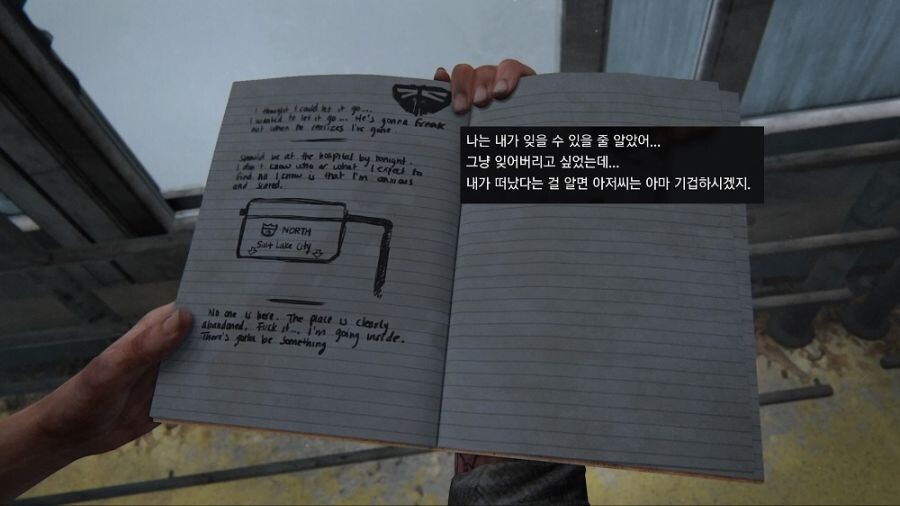 I thought I could let it go...
I wanted to let it go... He's gonna freak
out when he realizes I've gone.
Should be at the hospital by tonight.
I don't know who or what I expect to
find. All I know is that I'm anxious
and scared.
NORTH
Salt Lake City
No one is here. The place is clearly
abandoned. Fuck it... I'm going inside.
There's gotta be something
나는 내가 잊을 수 있을 줄 알았어...
그냥 잊어버리고 싶었는데...
내가 떠났다는 걸 알면 아저씨는 아마 기겁하시겠지.